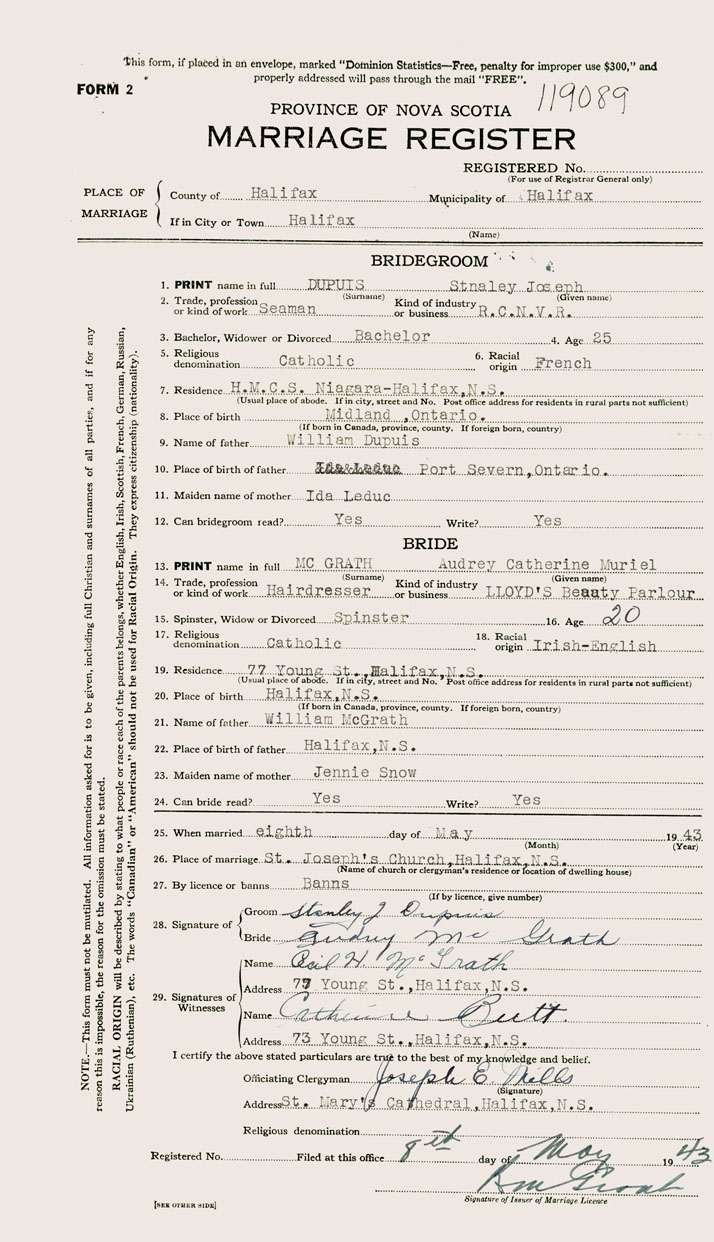 This form, if placed in an envelope, marked "Dominion Statistics—Free, penalty for improper use $300," and
properly addressed will pass through the mail "FREE".
FORM 2
119089
PROVINCE OF NOVA SCOTIA
MARRIAGE REGISTER
REGISTERED No.
(For use of Registrar General only)
PLACE OF MARRIAGE
County of Halifax Municipality of Halifax
If in City or Town Halifax
(Name)
BRIDEGROOM
1. PRINT name in full DUPUIS Stnaley Joseph
(Surname) (Given name)
2. Trade, profession or kind of work Seaman Kind of industry or business R.C.N.V.R.
3. Bachelor, Widower or Divorced Bachelor 4. Age 25
5. Religious denomination Catholic 6. Racial origin French
7. Residence H.M.C.S. Niagara-Halifax,N.S.
(Usual place of abode. If in city, street and No. Post office address for residents in rural parts not sufficient)
8. Place of birth Midland ,Ontario.
(If born in Canada, province, county. If foreign born, country)
9. Name of father William Dupuis
10. Place of birth of father Ida Leduc Port Severn,Ontario.
11. Maiden name of mother Ida Leduc
12. Can bridegroom read? Yes Write? Yes
BRIDE
13. PRINT name in full MC GRATH Audrey Catherine Muriel
(Surname) (Given name)
14. Trade, profession or kind of work Hairdresser Kind of industry or business LLOYD'S Beauty Parlour
15. Spinster, Widow or Divorced Spinster 16. Age 20
17. Religious denomination Catholic 18. Racial origin Irish-English
19. Residence 77 Young St.,Halifax,N.S.
(Usual place of abode. If in city, street and No. Post office address for residents in rural parts not sufficient)
20. Place of birth Halifax,N.S.
(If born in Canada, province, county. If foreign born, country)
21. Name of father William McGrath
22. Place of birth of father Halifax,N.S.
23. Maiden name of mother Jennie Snow
24. Can bride read? Yes Write? Yes
25. When married eighth day of May 1943
(Month) (Year)
26. Place of marriage St. Joseph's Church,Halifax,N.S.
(Name of church or clergyman's residence or location of dwelling house)
27. By licence or banns Banns
(If by licence, give number)
28. Signature of
Groom Stanley J Dupuis
Bride Audrey Mc Grath
29. Signatures of Witnesses
Name Cecil H. McGrath
Address 77 Young St.,Halifax,N.S.
Name Catherine Butt.
Address 73 Young St.,Halifax,N.S.
I certify the above stated particulars are true to the best of my knowledge and belief.
Officiating Clergyman Joseph E Mills
(Signature)
Address St. Mary's Cathedral,Halifax,N.S.
Religious denomination
Registered No. Filed at this office 8th day of May 1943
Signature of Issuer of Marriage Licence
[SEE OTHER SIDE]
NOTE.—This form must not be mutilated. All information asked for is to be given, including full Christian and surnames of all parties, and if for any
reason this is impossible, the reason for the omission must be stated.
RACIAL ORIGIN will be described by stating to what people or race each of the parents belongs, whether English, Irish, Scottish, French, German, Russian,
Ukrainian (Ruthenian), etc. The words "Canadian" or "American" should not be used for Racial Origin. They express citizenship (nationality).